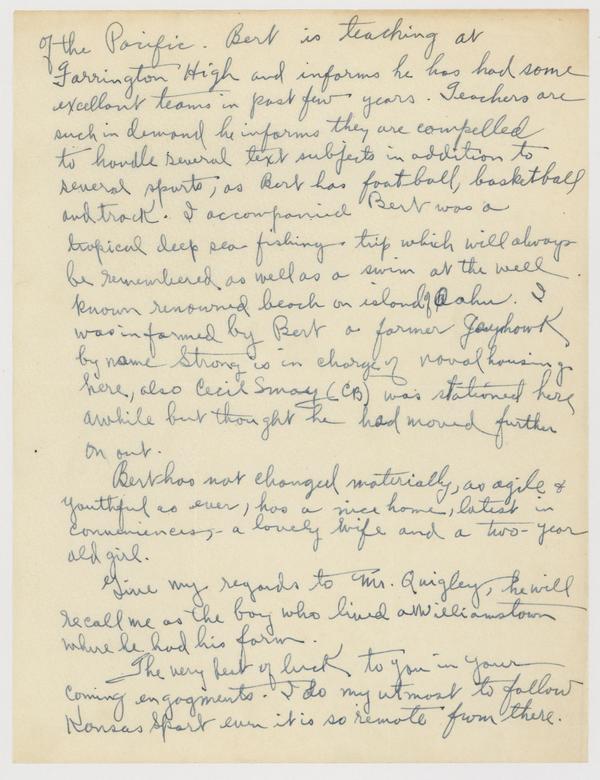 of the Pacific. Bert is teaching at
Farrington High and informs he has had some
excellant teams in past few years. Teachers are
such in demand he informs they are compelled
to handle several text subjects in addition to
several sports, as Bert has football, basketball
and track. I accompanied Bert was a
tropical deep sea fishing trip which will always
be remembered as well as a swim at the well
known renowned beach on island of Oahu. I
was informed by Bert a former Jayhawk
by name Strong is in charge of naval housing
here, also Cecil Smay (CB) was stationed here
awhile but thought he had moved further
on out.
Bert has not changed materially, as agile &
youthful as ever, has a nice home, latest in
conveniences, - a lovely wife and a two-year
old girl.
Give my regards to Mr. Quigley, he will
recall me as the boy who lived at Williamstown
where he had his farm.
The very best of luck to you in your
coming engagments. I do my utmost to follow
Kansas Sport even it is so remote from there.